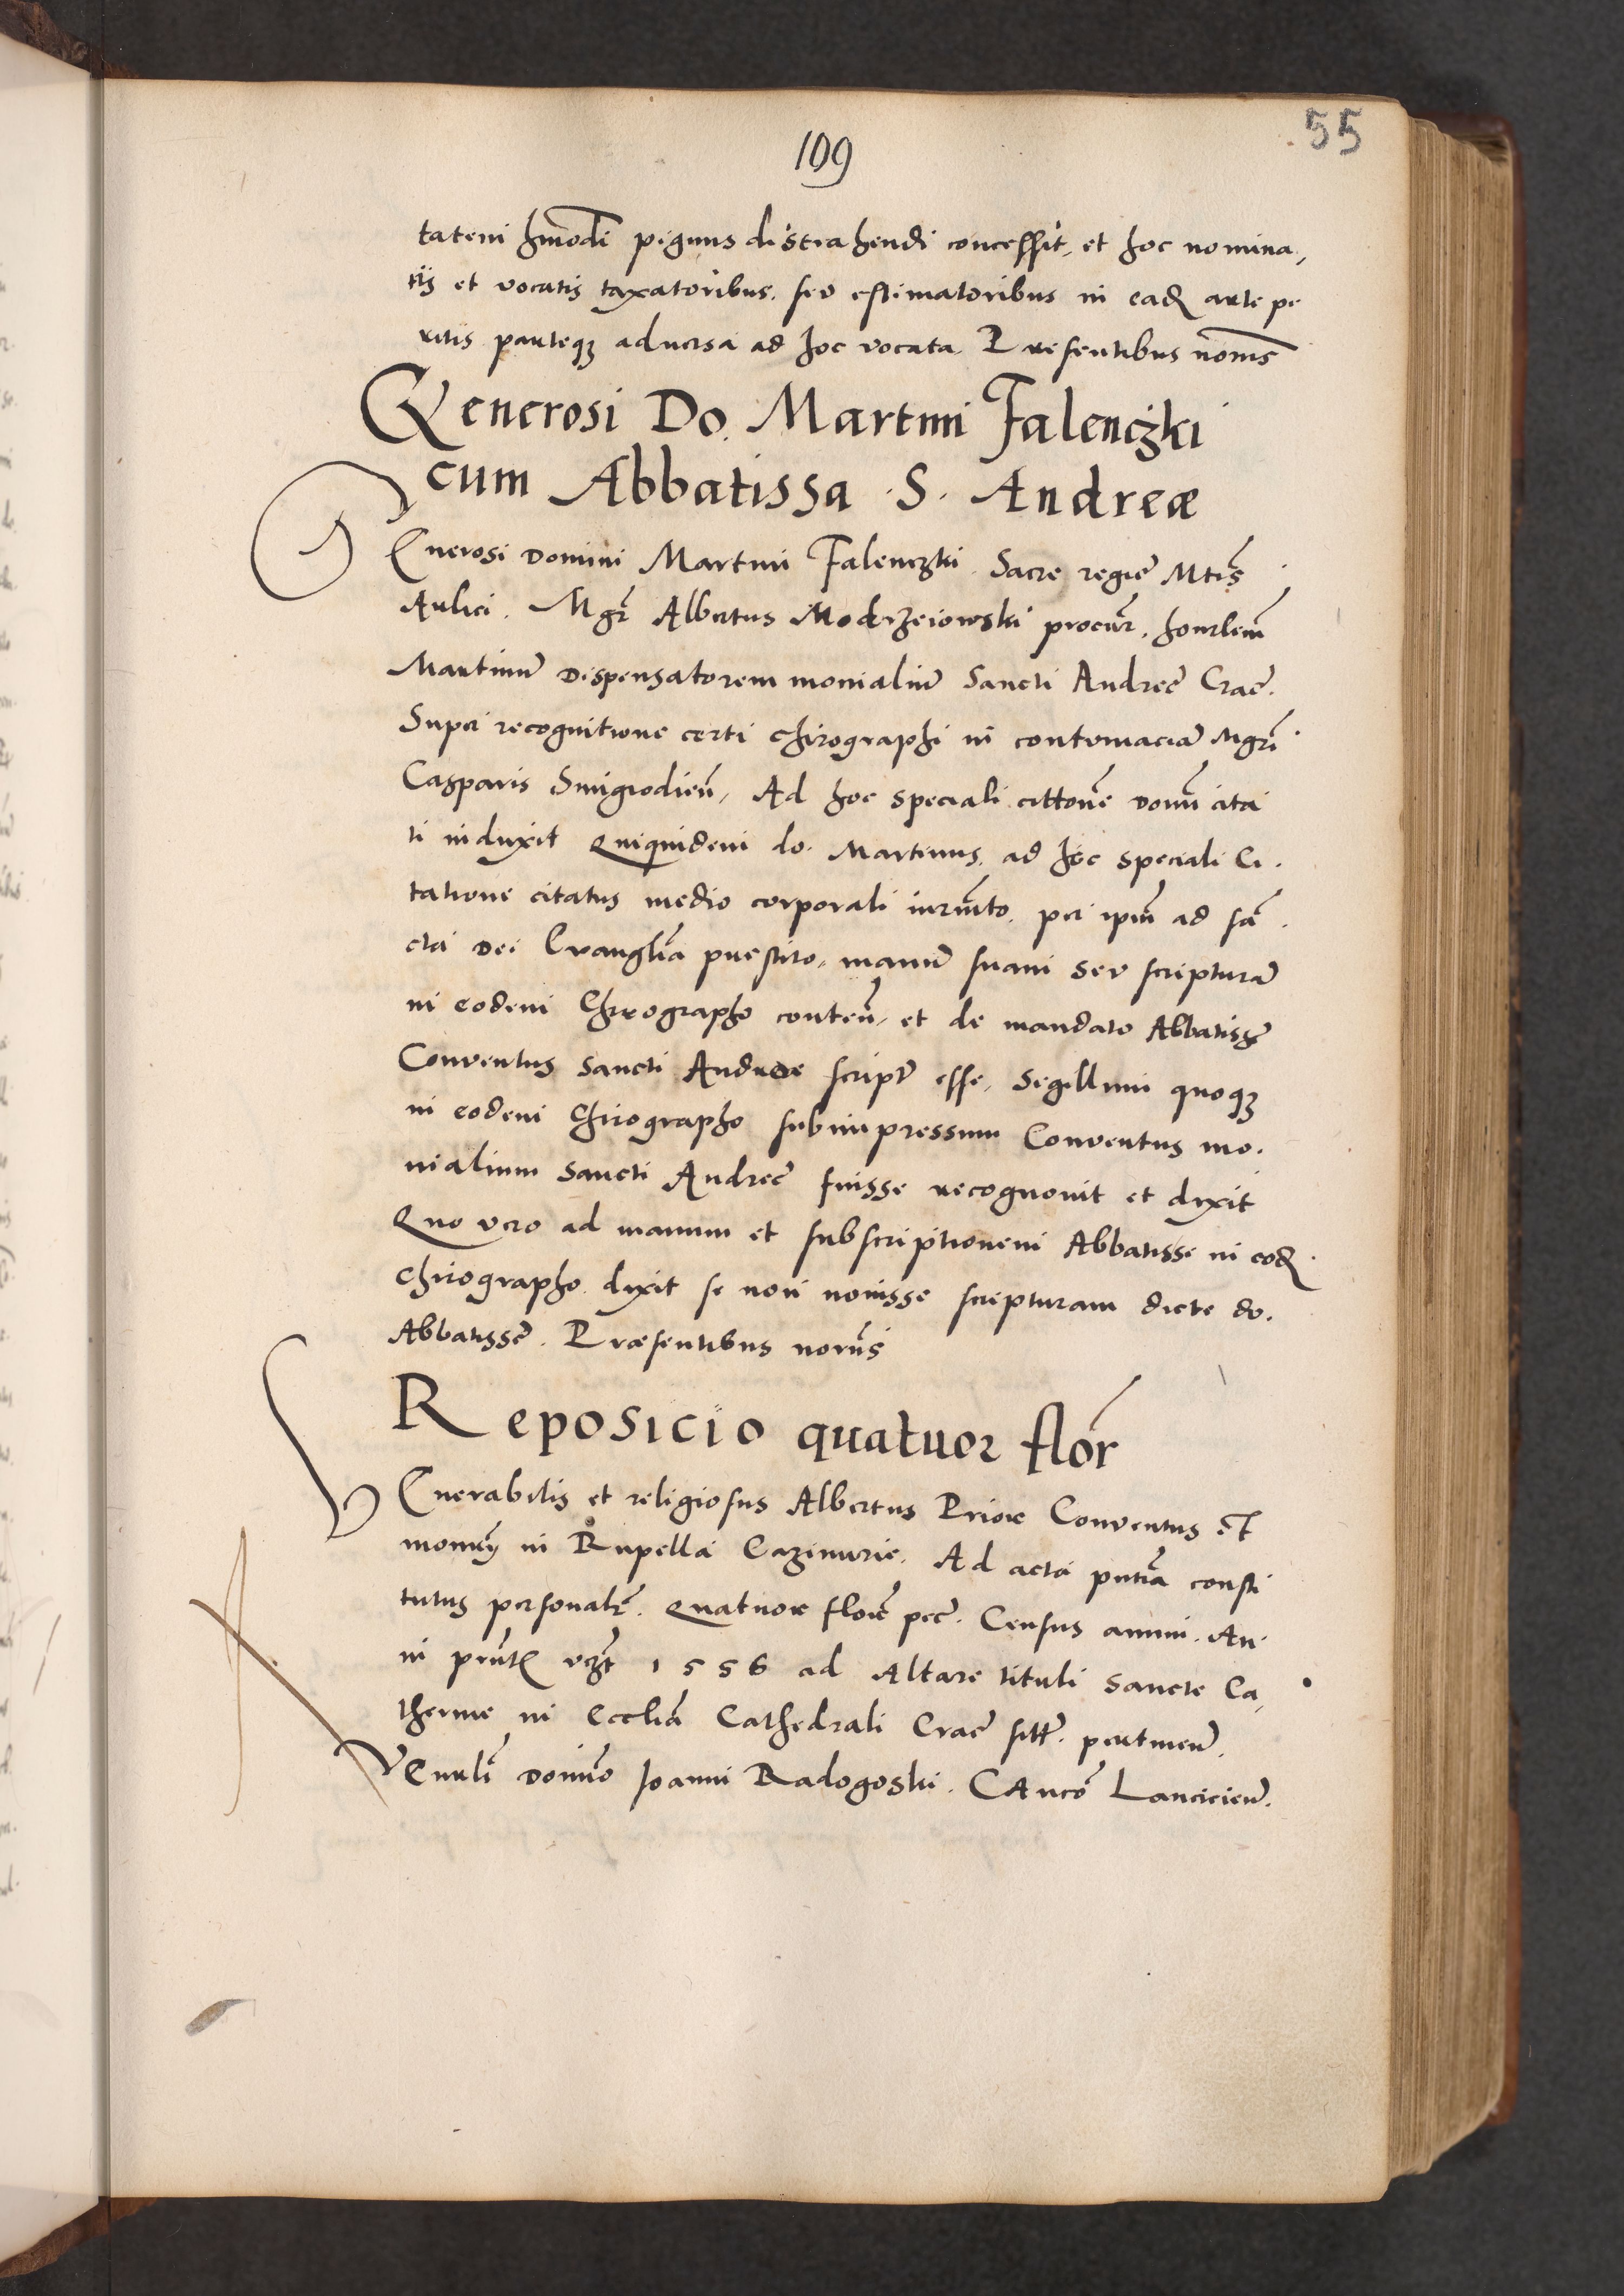 109
55
tatem hmodi pignus distrahendi concessit, et hoc nomina,
tis et vocatis taxatoribus, seu estimatoribus in eadē arte pe
ritis parteqz adversa ad hoc vocata. Presentibus nonis
Generosi Do. Martini Falenczki
cum Abbatissa .S. Andreæ
Generosi Domini Martini Falenczki. Sacre regie Mtis
Aulici. Mgr Albertus Modrzeiowski procur. honrlem
Martinū dispensatorem monialiū Sancti Andree Crac.
Super recognitione certi chirographi in contumaciā Mgri
Casparis Smigrodień, Ad hoc speciali cittone domū cita
ti induxit Quiquidem do. Martinus, ad hoc speciali Ci.
tatione citatus medio corporali iurmto, per ipm ad sā
cta Dei Evanglia prestito, manū suam seu scripturā
in eodem Chirographo conteñ, et de mandato Abbatisse
Conventus Sancti Andree script esse, Sigillum quoqz
in eodem Chirographo subimpressum Conventus mo.
nialium Sancti Andree fuisse recognovit et dixit
Quo vero ad manum et subscriptionem Abbatisse in eodē
chirographo dixit se non novisse scripturam dicte do.
Abbatisse. Præsentibus nonis
Reposicio quatuor flor
Venerabilis et religiosus Albertus Prior Conventus et
in Rupella Cazimirie. Ad acta pntia consti
tutus personalr. Quatuor flore pec. Census annui. An
ni pnt vzt 1556 ad Altare tituli Sancte Ca,
therine in Ecclia Cathedrali Crac sitt. pertineñ.
Venrli domino Joanni Radogoski. CAnco Lancicień.